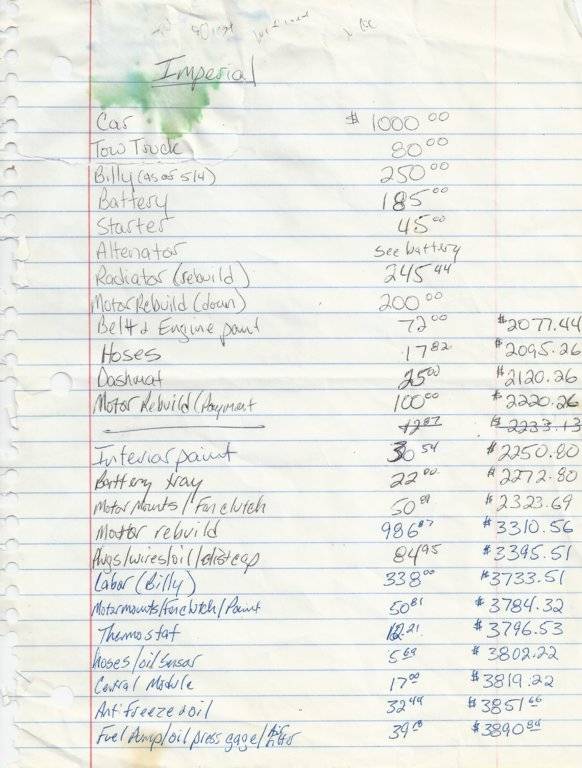 Imperial
Car $ 1000 00
Tow Truck 80 00
Billy (as of 5/4) 250 00
Battery 185 00
Starter 45 00
Alternator see battery
Radiator (rebuild) 245 44
Motor Rebuild (down) 200 00
Belt & Engine paint 72 00 $2077.44
Hoses 17 82 $2095.26
Dashmat 25 00 $2120.26
Motor Rebuild (Payment 100 00 $2220.26
12 87 $2233.13
Interior paint 30 54 $2250.80
Battery tray 22 00 $2272.80
Motor Mounts / Fan clutch 50 89 $2323.69
Motor rebuild 986 87 $3310.56
Plugs/wires/oil/dist cap 84 95 $3395.51
Labor (Billy) 338 00 $3733.51
Motor mounts/Fan clutch/Paint 50 81 $3784.32
Thermostat 12.21 $3796.53
hoses/oil sensor 5 69 $3802.22
Control Module 17 00 $3819.22
Antifreeze & oil 32 44 $3851 66
Fuel Pump/oil press gage/Air Filter 39 18 $3890 84